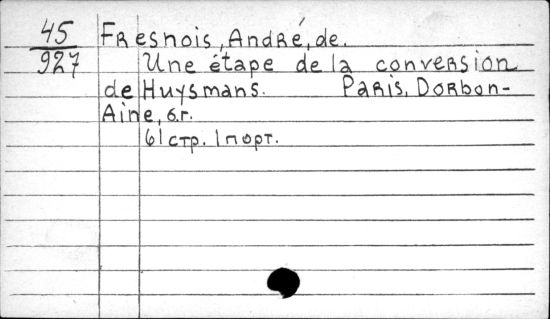 45 Fresnois, André, de.
927 Une étape de la conversion
de Huysmans. Paris, Dorbon-
Aine, б.г.
61 стр. 1 порт.